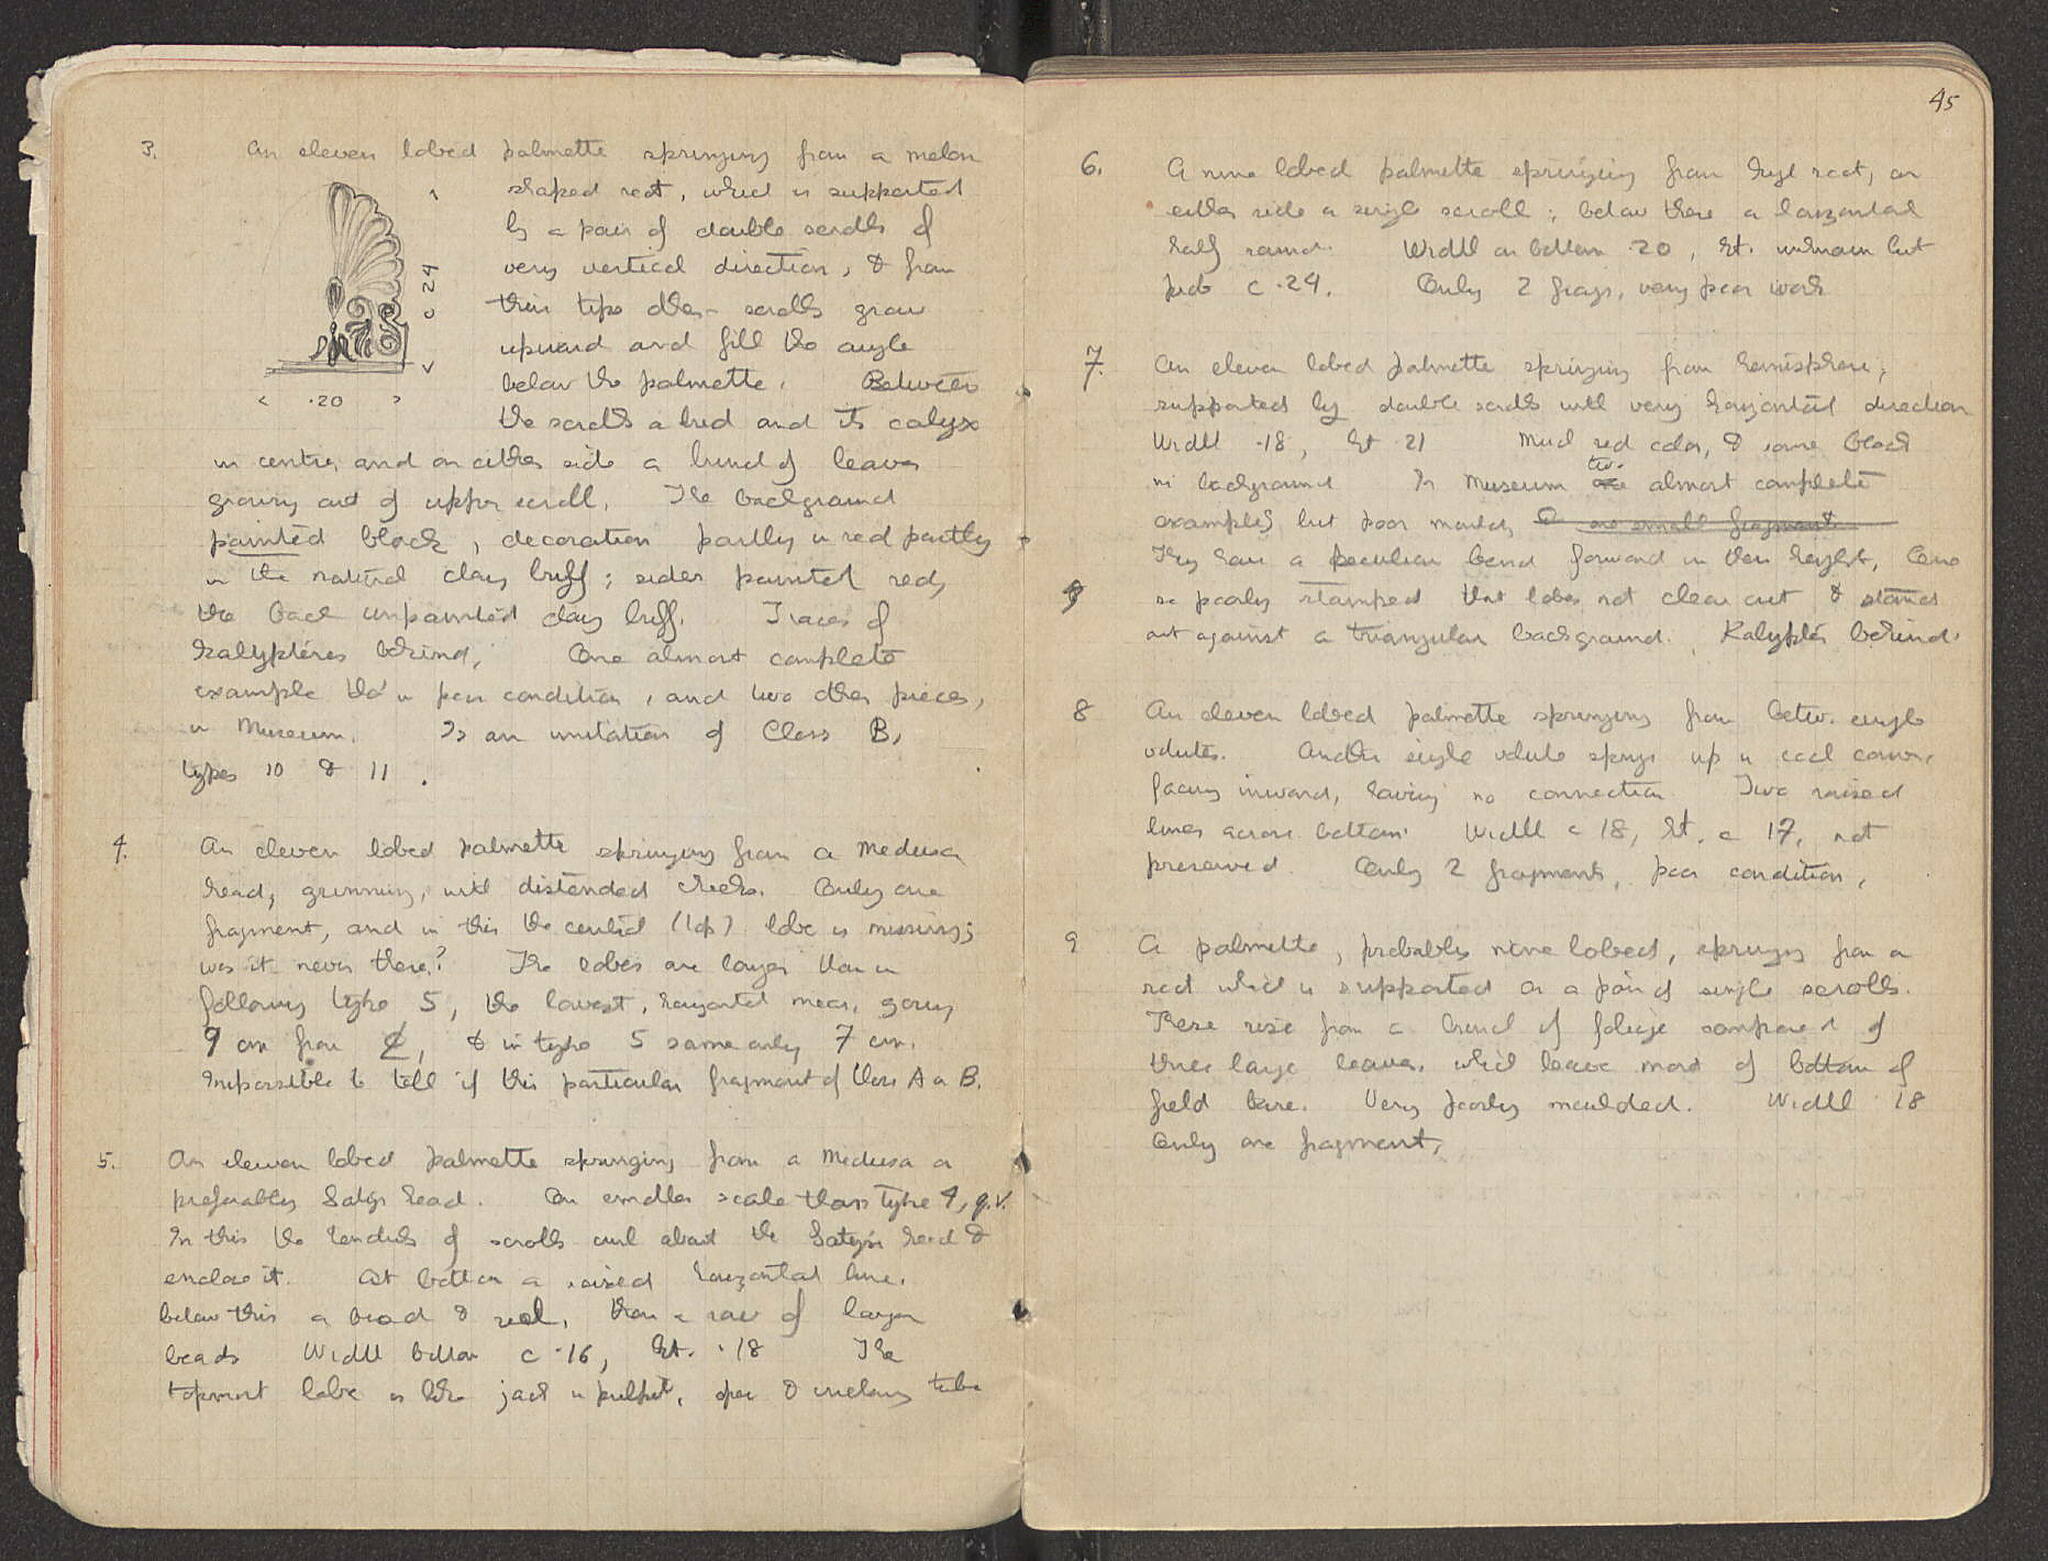 3. An eleven lobed palmette springing from a melon
shaped root, which is supported
by a pair of double scrolls of
very vertical direction, & from
their tips other scrolls grow
upward and fill the angle
below the palmette. Between
the scrolls a bud and its calyx
c 24
< .20 >
in centre, and on either side a bunch of leaves
growing out of upper scroll. The background
painted black, decoration partly in red partly
in the natural clay buff; sides painted red,
the back unpainted clay buff. Traces of
kalyptéres behind. One almost complete
example tho' in poor condition, and two other pieces,
in Museum. Is an imitation of Class B,
types 10 & 11.
4. An eleven lobed palmette springing from a Medusa
head, grinning, with distended cheeks. Only one
fragment, and in this the central (top) lobe is missing;
was it never there? The lobes are longer than in
following type 5, the lowest, horizontal meas. going
9 cm from ₵, & in type 5 same only 7 cm.
Impossible to tell if this particular fragment of Class A or B.
5. An eleven lobed palmette springing from a Medusa or
preferably Satyr head. On smaller scale than type 4, q.v.
In this the tendrils of scrolls curl about the Satyr's head &
enclose it. At bottom a raised horizontal line,
below this a bead & reel, then a row of larger
beads Width bottom c .16, ht. .18 The
topmost lobe is like jack in pulpit, open & enclosing tube
45
6. A nine lobed palmette springing from high root, on
either side a single scroll; below these a horizontal
half round. Width on bottom .20, ht. unknown but
prob c .24. Only 2 frags, very poor work
7. An eleven lobed palmette springing from hemisphere,
supported by double scrolls with very horizontal direction
Width .18, ht 21 Much red color, & some black
in background In Museum two almost complete
examples but poor moulds, & one small fragment
They have a peculiar bend forward in their height. One
so poorly stamped that lobes not clear cut & stands
out against a triangular background. Kalyptér behind.
8 An eleven lobed palmette springing from betw. single
volutes. Another single volute springs up in each corner,
facing inward, having no connection. Two raised
lines across bottom. Width c 18, ht. c 17, not
preserved. Only 2 fragments, poor condition.
9 A palmette, probably nine lobed, springs from a
root which is supported on a pair of single scrolls.
These rise from a bunch of foliage composed of
three large leaves, which leave most of bottom of
field bare. Very poorly moulded. Width .18
Only one fragment.